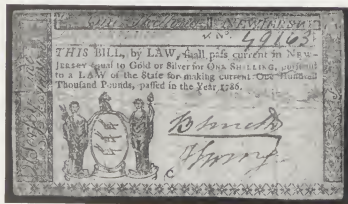 NEW JERSEY
No. 49163
THIS BILL, by LAW, ſhall paſs current in NEW-
JERSEY equal to Gold or Silver for ONE SHILLING, purſuant
to a LAW of the State for making current One Hundred
Thouſand Pounds, paſſed in the Year 1786.
B Smith
C